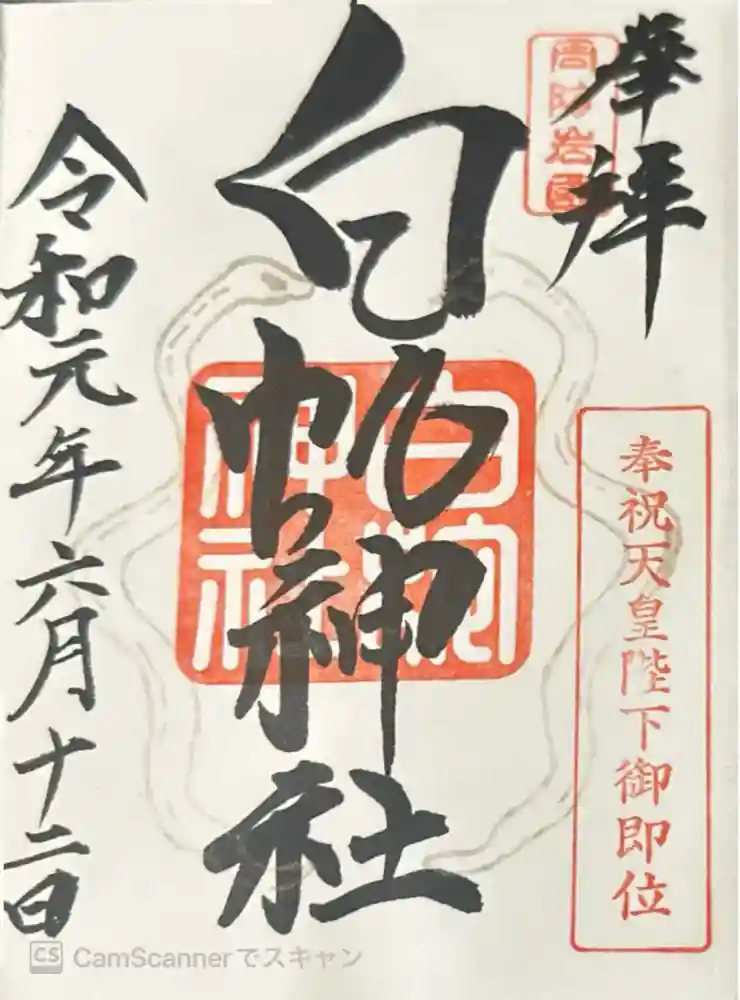 奉拝
周防岩國
奉祝天皇陛下御即位
白蛇神社
白蛇
神社
令和元年六月十二日
CS CamScannerでスキャン